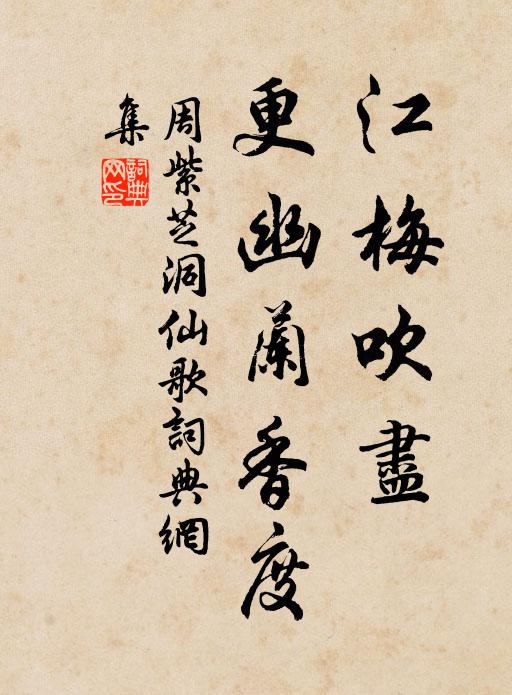 江梅吹盡
更幽蘭香度
周紫芝洞仙歌詞典網
集
詞典網印